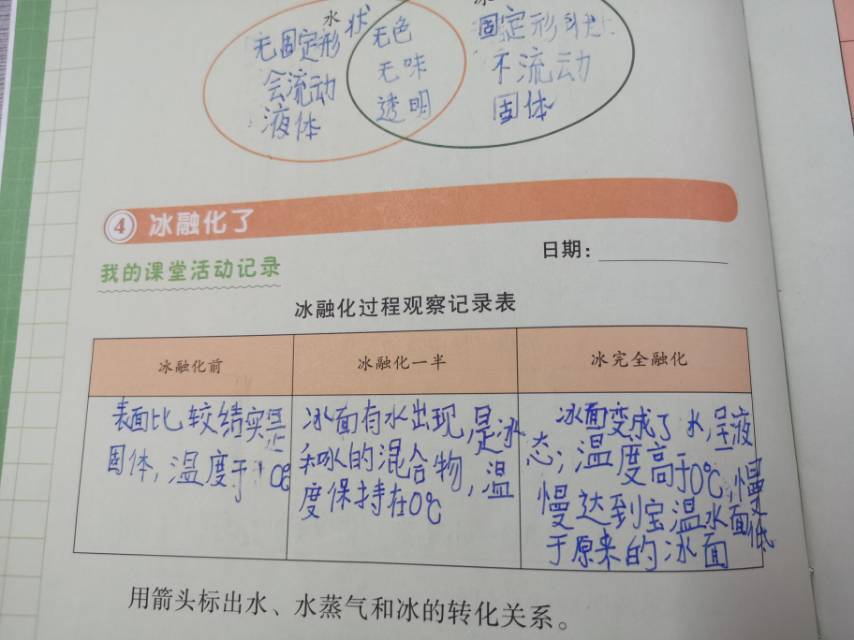 水
无固定形状
会流动
液体
无色
无味
透明
固定形状
不流动
固体
4 冰融化了
日期：
我的课堂活动记录
冰融化过程观察记录表
冰融化前
冰融化一半
冰完全融化
表面比较结实是
固体，温度于10℃
冰面有水出现，是冰
和水的混合物，温
度保持在0℃
冰面变成了水，呈液
态；温度高于0℃，慢
慢达到室温水面低
于原来的冰面
用箭头标出水、水蒸气和冰的转化关系。